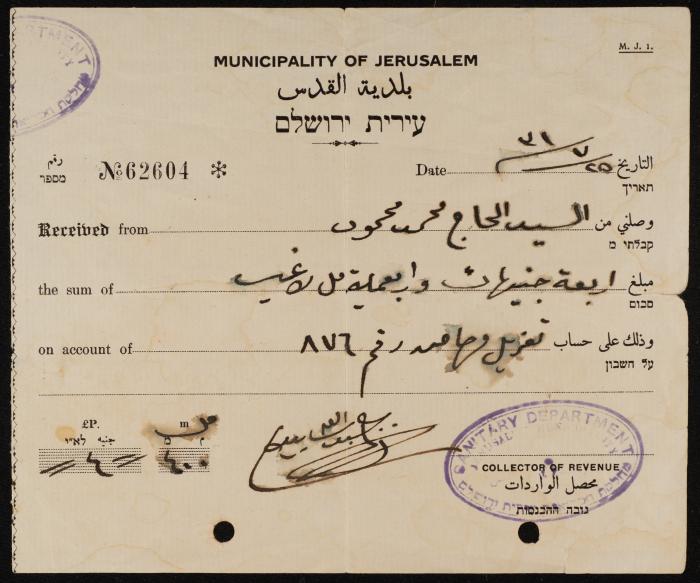 M. J. 1.
MUNICIPALITY OF JERUSALEM
بلدية القدس
עירית ירושלם
رقم
מספר
№62604 *
Date ٢٥ ٧ ٣١ التاريخ
תאריך
Received from السيد الحاج محمد محمود وصلني من
קבלתי מ
the sum of اربعة جنيهات واربعماية مل لا غير مبلغ
סכום
on account of رقم ٨٧٦ وذلك على حساب
על חשבון
£P. m
جنيه לא״י م מ
٤ ٤٠٠
SANITARY DEPARTMENT
COLLECTOR OF REVENUE
محصل الواردات
גובה ההכנסות